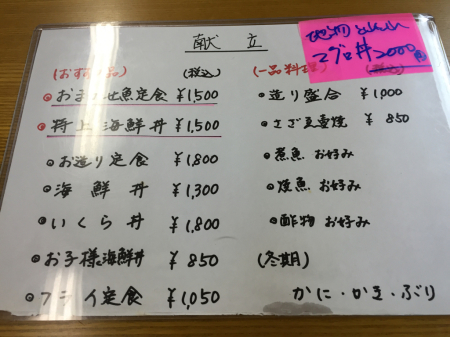 献立
地物とれとれ
マグロ丼2000円
(おすすめ品) (税込)
おまかせ魚定食 ¥1,500
特上海鮮丼 ¥1,500
お造り定食 ¥1,800
海鮮丼 ¥1,300
いくら丼 ¥1,800
お子様海鮮丼 ¥850
フライ定食 ¥1,050
(一品料理) (税込)
造り盛合 ¥1,000
さざえ壺焼 ¥850
煮魚 お好み
焼魚 お好み
酢物 お好み
(冬期)
かに・かき・ぶり